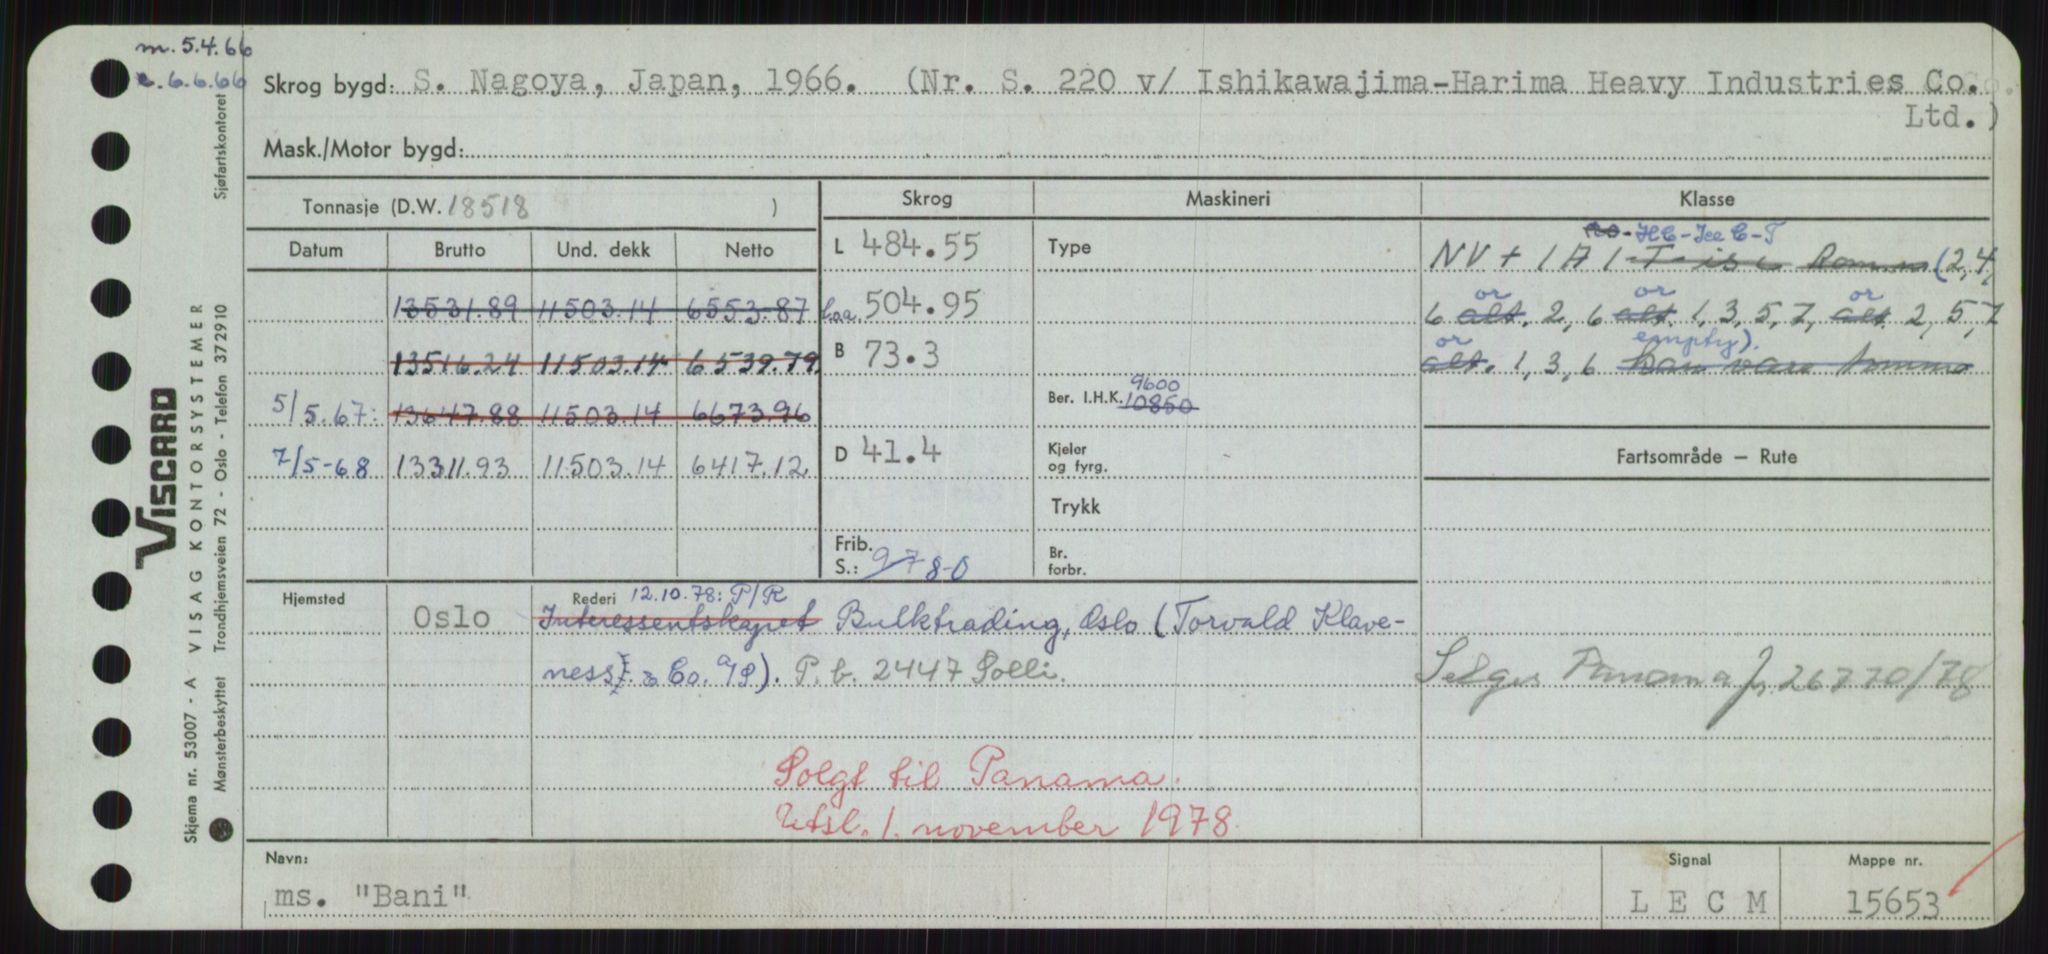 m. 5.4.66
6.6.66
Skrog bygd: S. Nagoya, Japan, 1966. (Nr. S. 220 v/ Ishikawajima-Harima Heavy Industries Co.
Ltd.)
Mask./Motor bygd:
Tonnasje (D.W. 18518 )
Skrog
Maskineri
Klasse
Datum Brutto Und. dekk Netto
L 484.55
Type
HC-Ice C-T
NV + 1A1-T-is c (2,4,
13531.89 11503.14 6553.87
Loa. 504.95
or or or
6 alt. 2, 6 alt. 1, 3, 5, 7, alt 2, 5, 7
13516.24 11503.14 6539.79
B 73.3
or empty).
alt. 1, 3, 6 kan være tomme
5/5.67: 13647.88 11503.14 6673.96
9600
Ber. I.H.K. 10850
7/5-68 13311.93 11503.14 6417.12
D 41.4
Kjeler
og fyrg.
Fartsområde – Rute
Trykk
Frib.
S.: 9-7 8-0
Br.
forbr.
Hjemsted
Oslo
Rederi 12.10.78: P/R
Interessentskapet Bulktrading, Oslo (Torvald Klave-
ness & Co. A/S). P.b. 2447 Solli.
Selges Panama 26770/78
Solgt til Panama.
Utsl. 1. november 1978.
Navn:
ms. "Bani"
Signal
L E C M
Mappe nr.
15653
VISCARD
Skjema nr. 53007 - A VISAG KONTORSYSTEMER
Mønsterbeskyttet Trondhjemsveien 72 - Oslo - Telefon 372910
Sjøfartskontoret